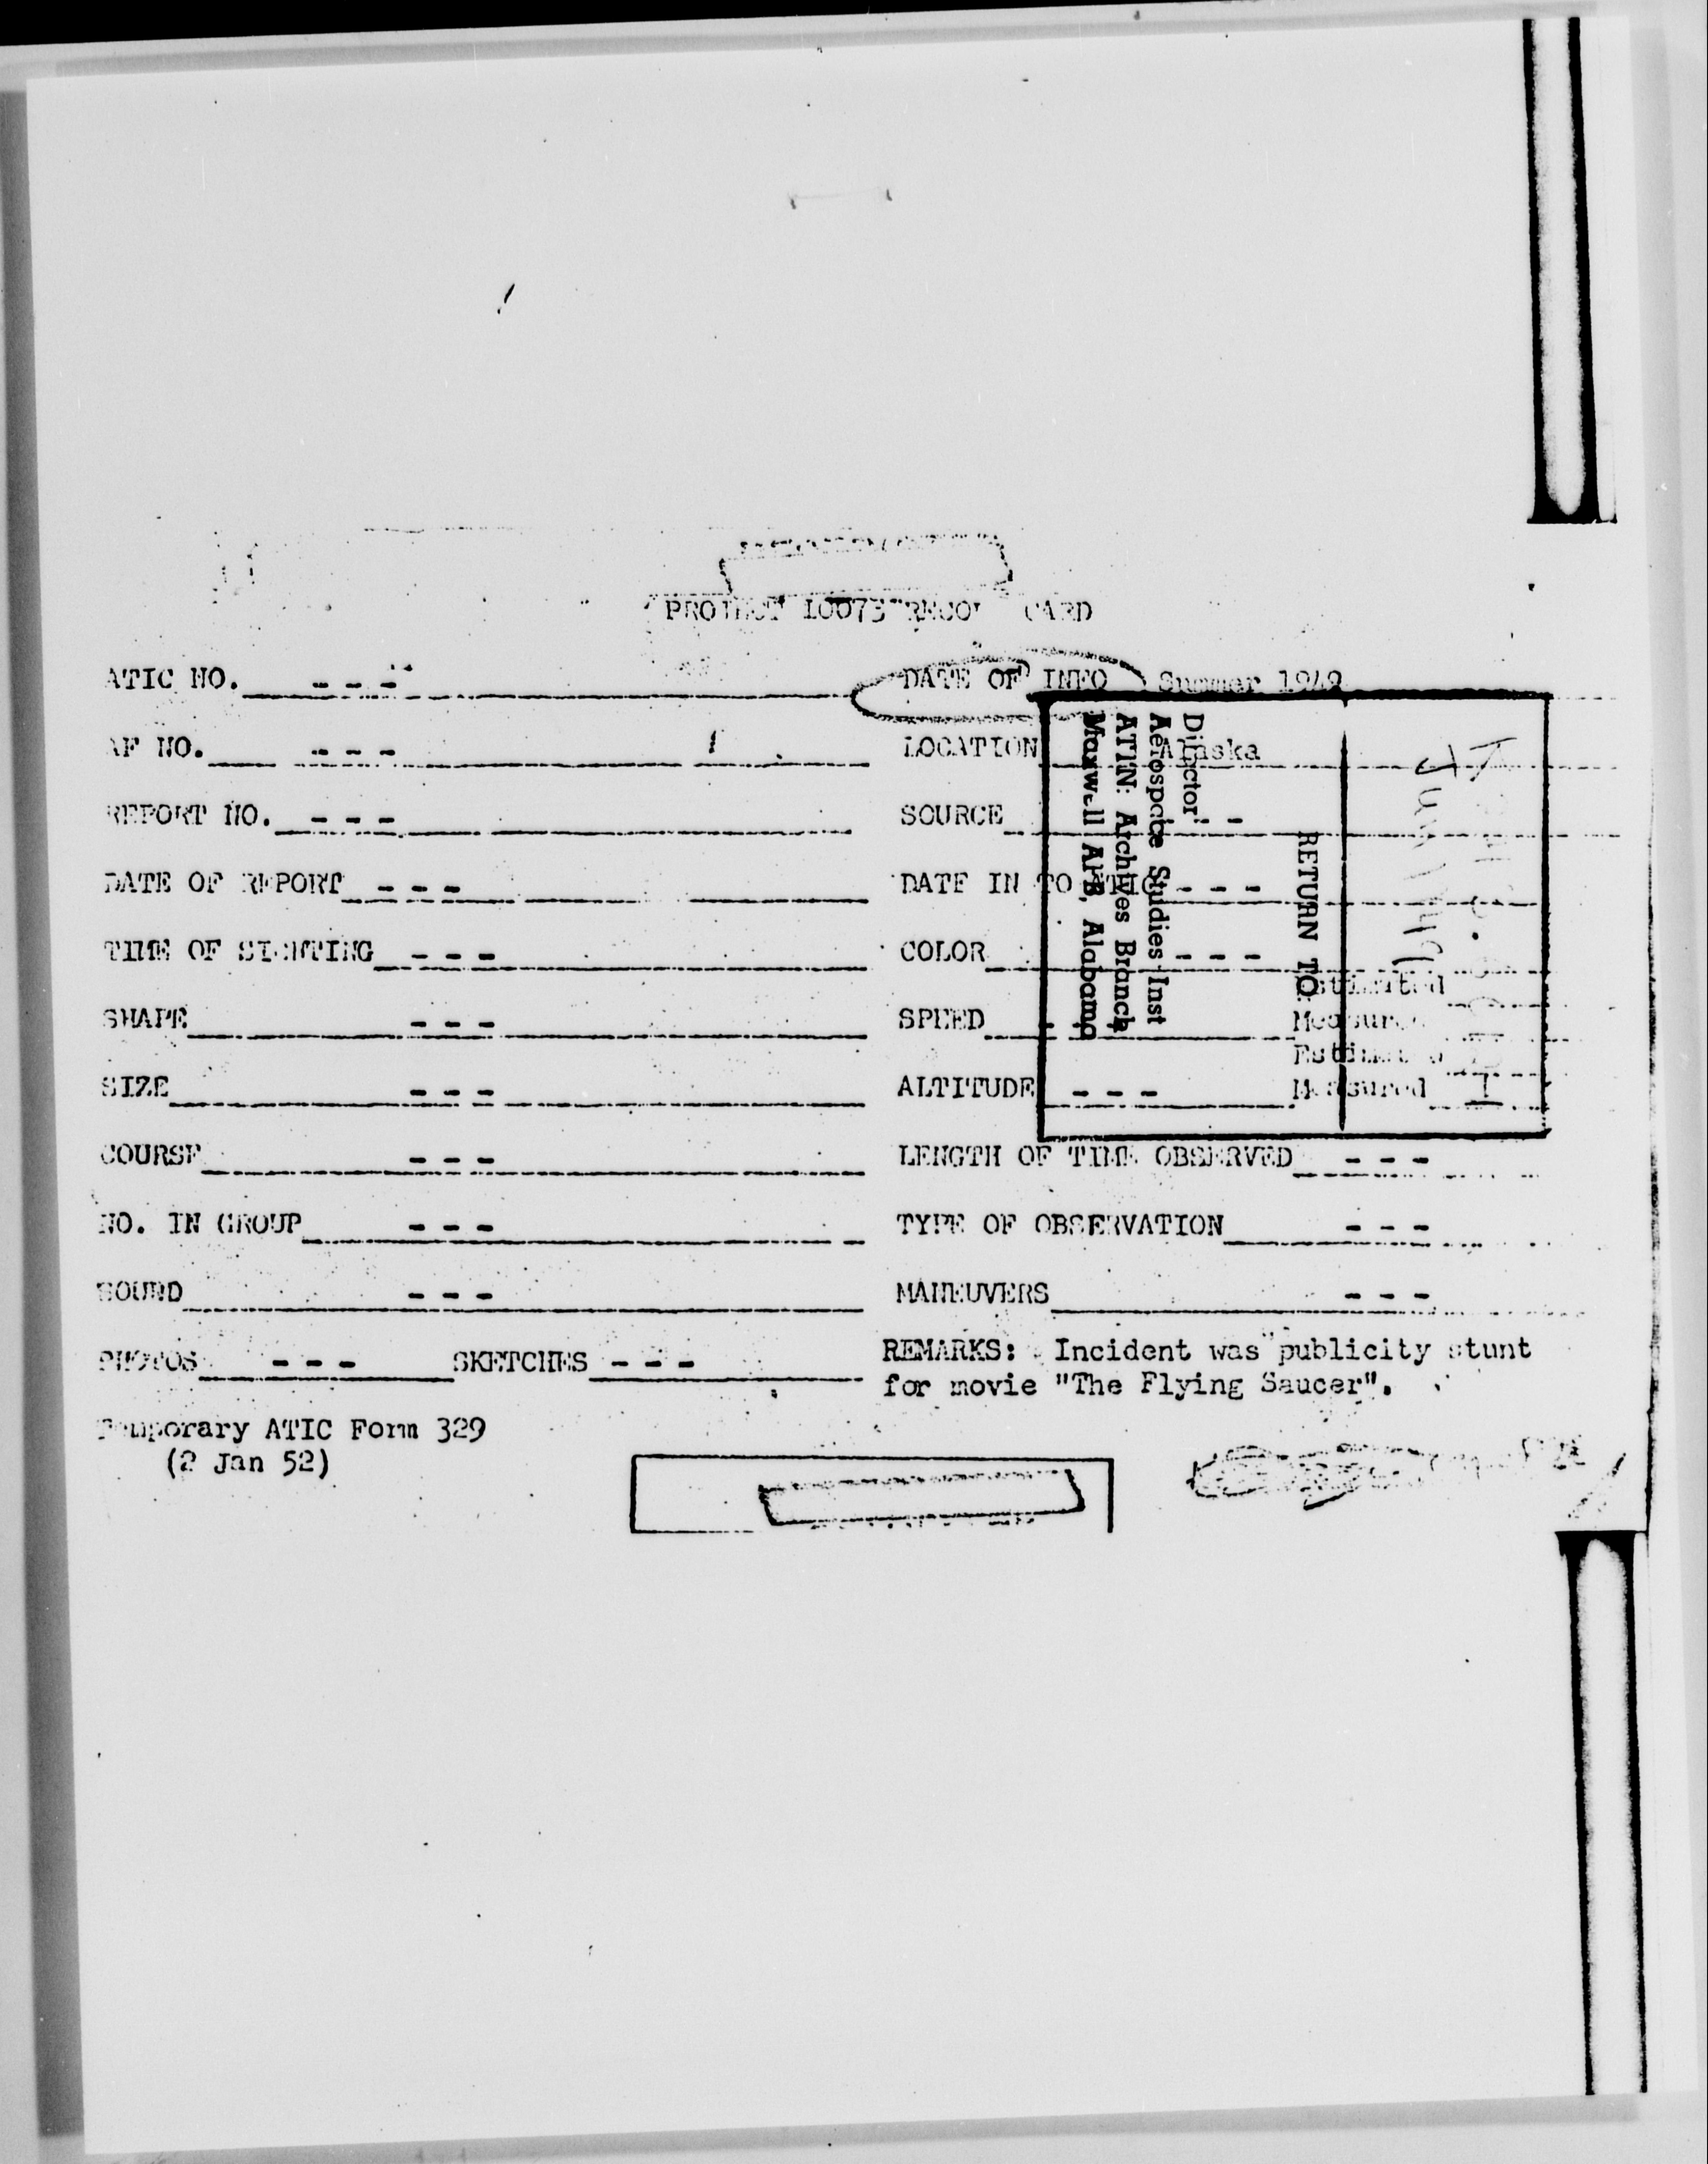 PROJECT 10073 RECORD CARD
ATIC NO. - - -
DATE OF INFO Summer 1949
AF NO. - - -
LOCATION Alaska
REPORT NO. - - -
SOURCE - - -
DATE OF REPORT - - -
DATE IN TO ATIC - - -
TIME OF SIGHTING - - -
COLOR - - -
SHAPE - - -
SPEED - - -
Estimated
Measured
SIZE - - -
ALTITUDE - - -
Estimated
Measured
COURSE - - -
LENGTH OF TIME OBSERVED - - -
NO. IN GROUP - - -
TYPE OF OBSERVATION - - -
SOUND - - -
MANEUVERS - - -
PHOTOS - - - SKETCHES - - -
REMARKS: Incident was publicity stunt
for movie "The Flying Saucer".
Temporary ATIC Form 329
(2 Jan 52)
RETURN TO
Director
Aerospace Studies Inst
ATTN: Archives Branch
Maxwell AFB, Alabama